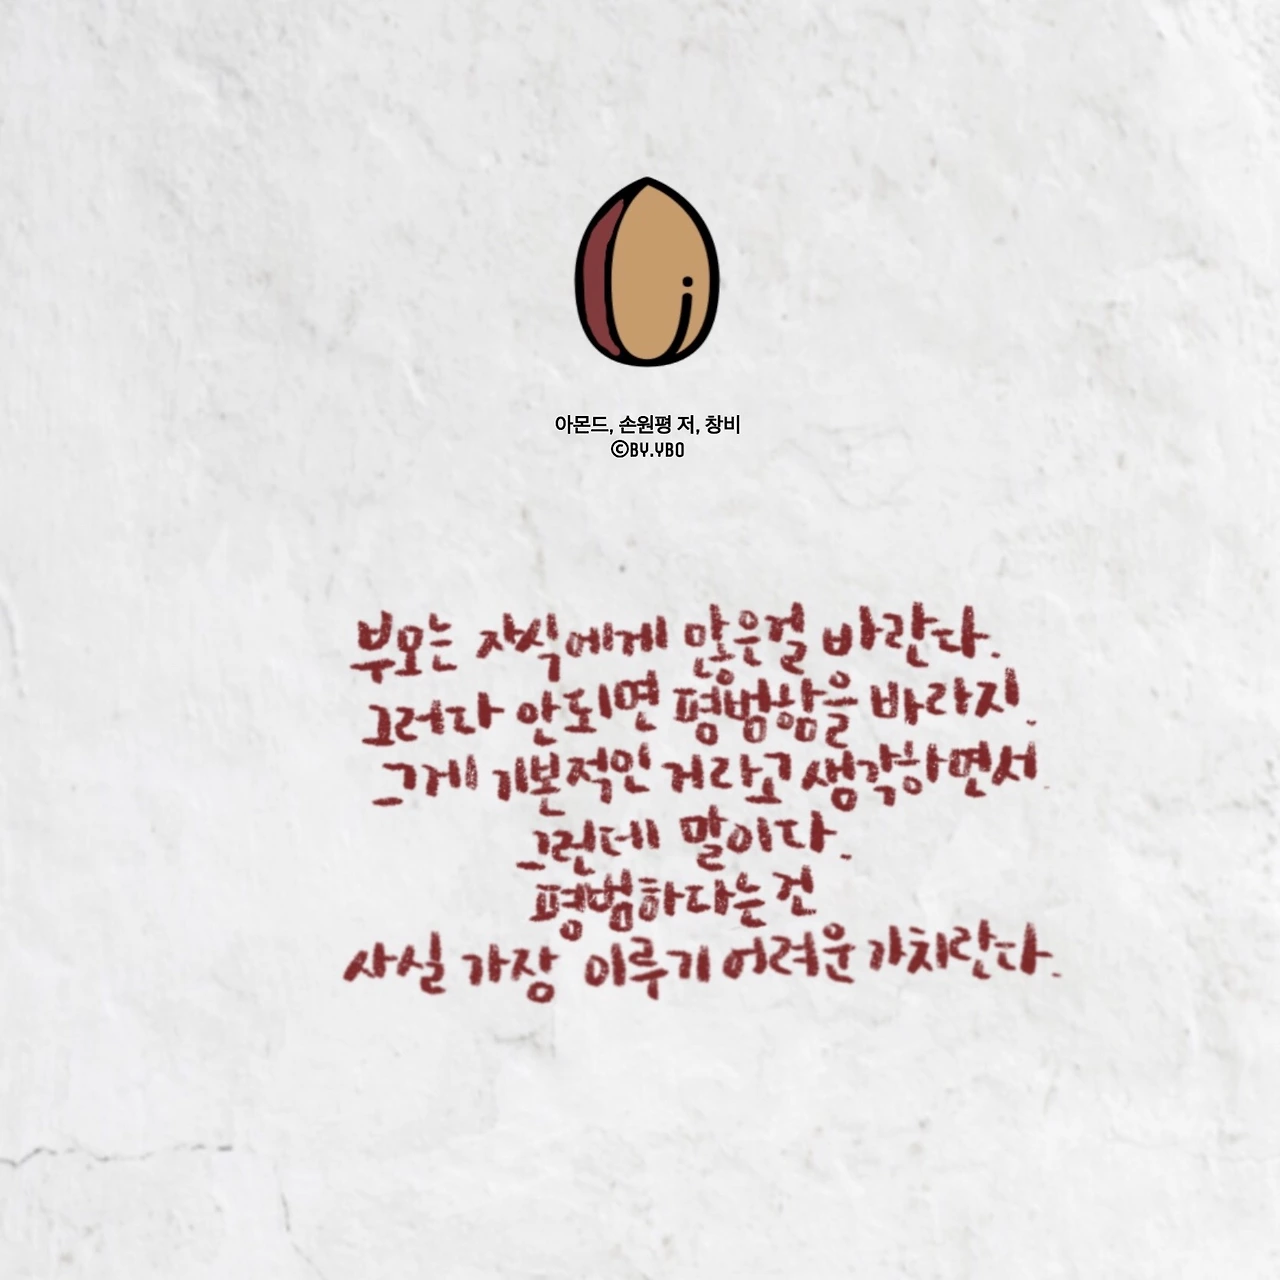 아몬드, 손원평 저, 창비
©BY.YBO
부모는 자식에게 많은걸 바란다.
그러다 안되면 평범함을 바라지.
그게 기본적인 거라고 생각하면서.
그런데 말이다.
평범하다는건
사실 가장 이루기 어려운 가치란다.